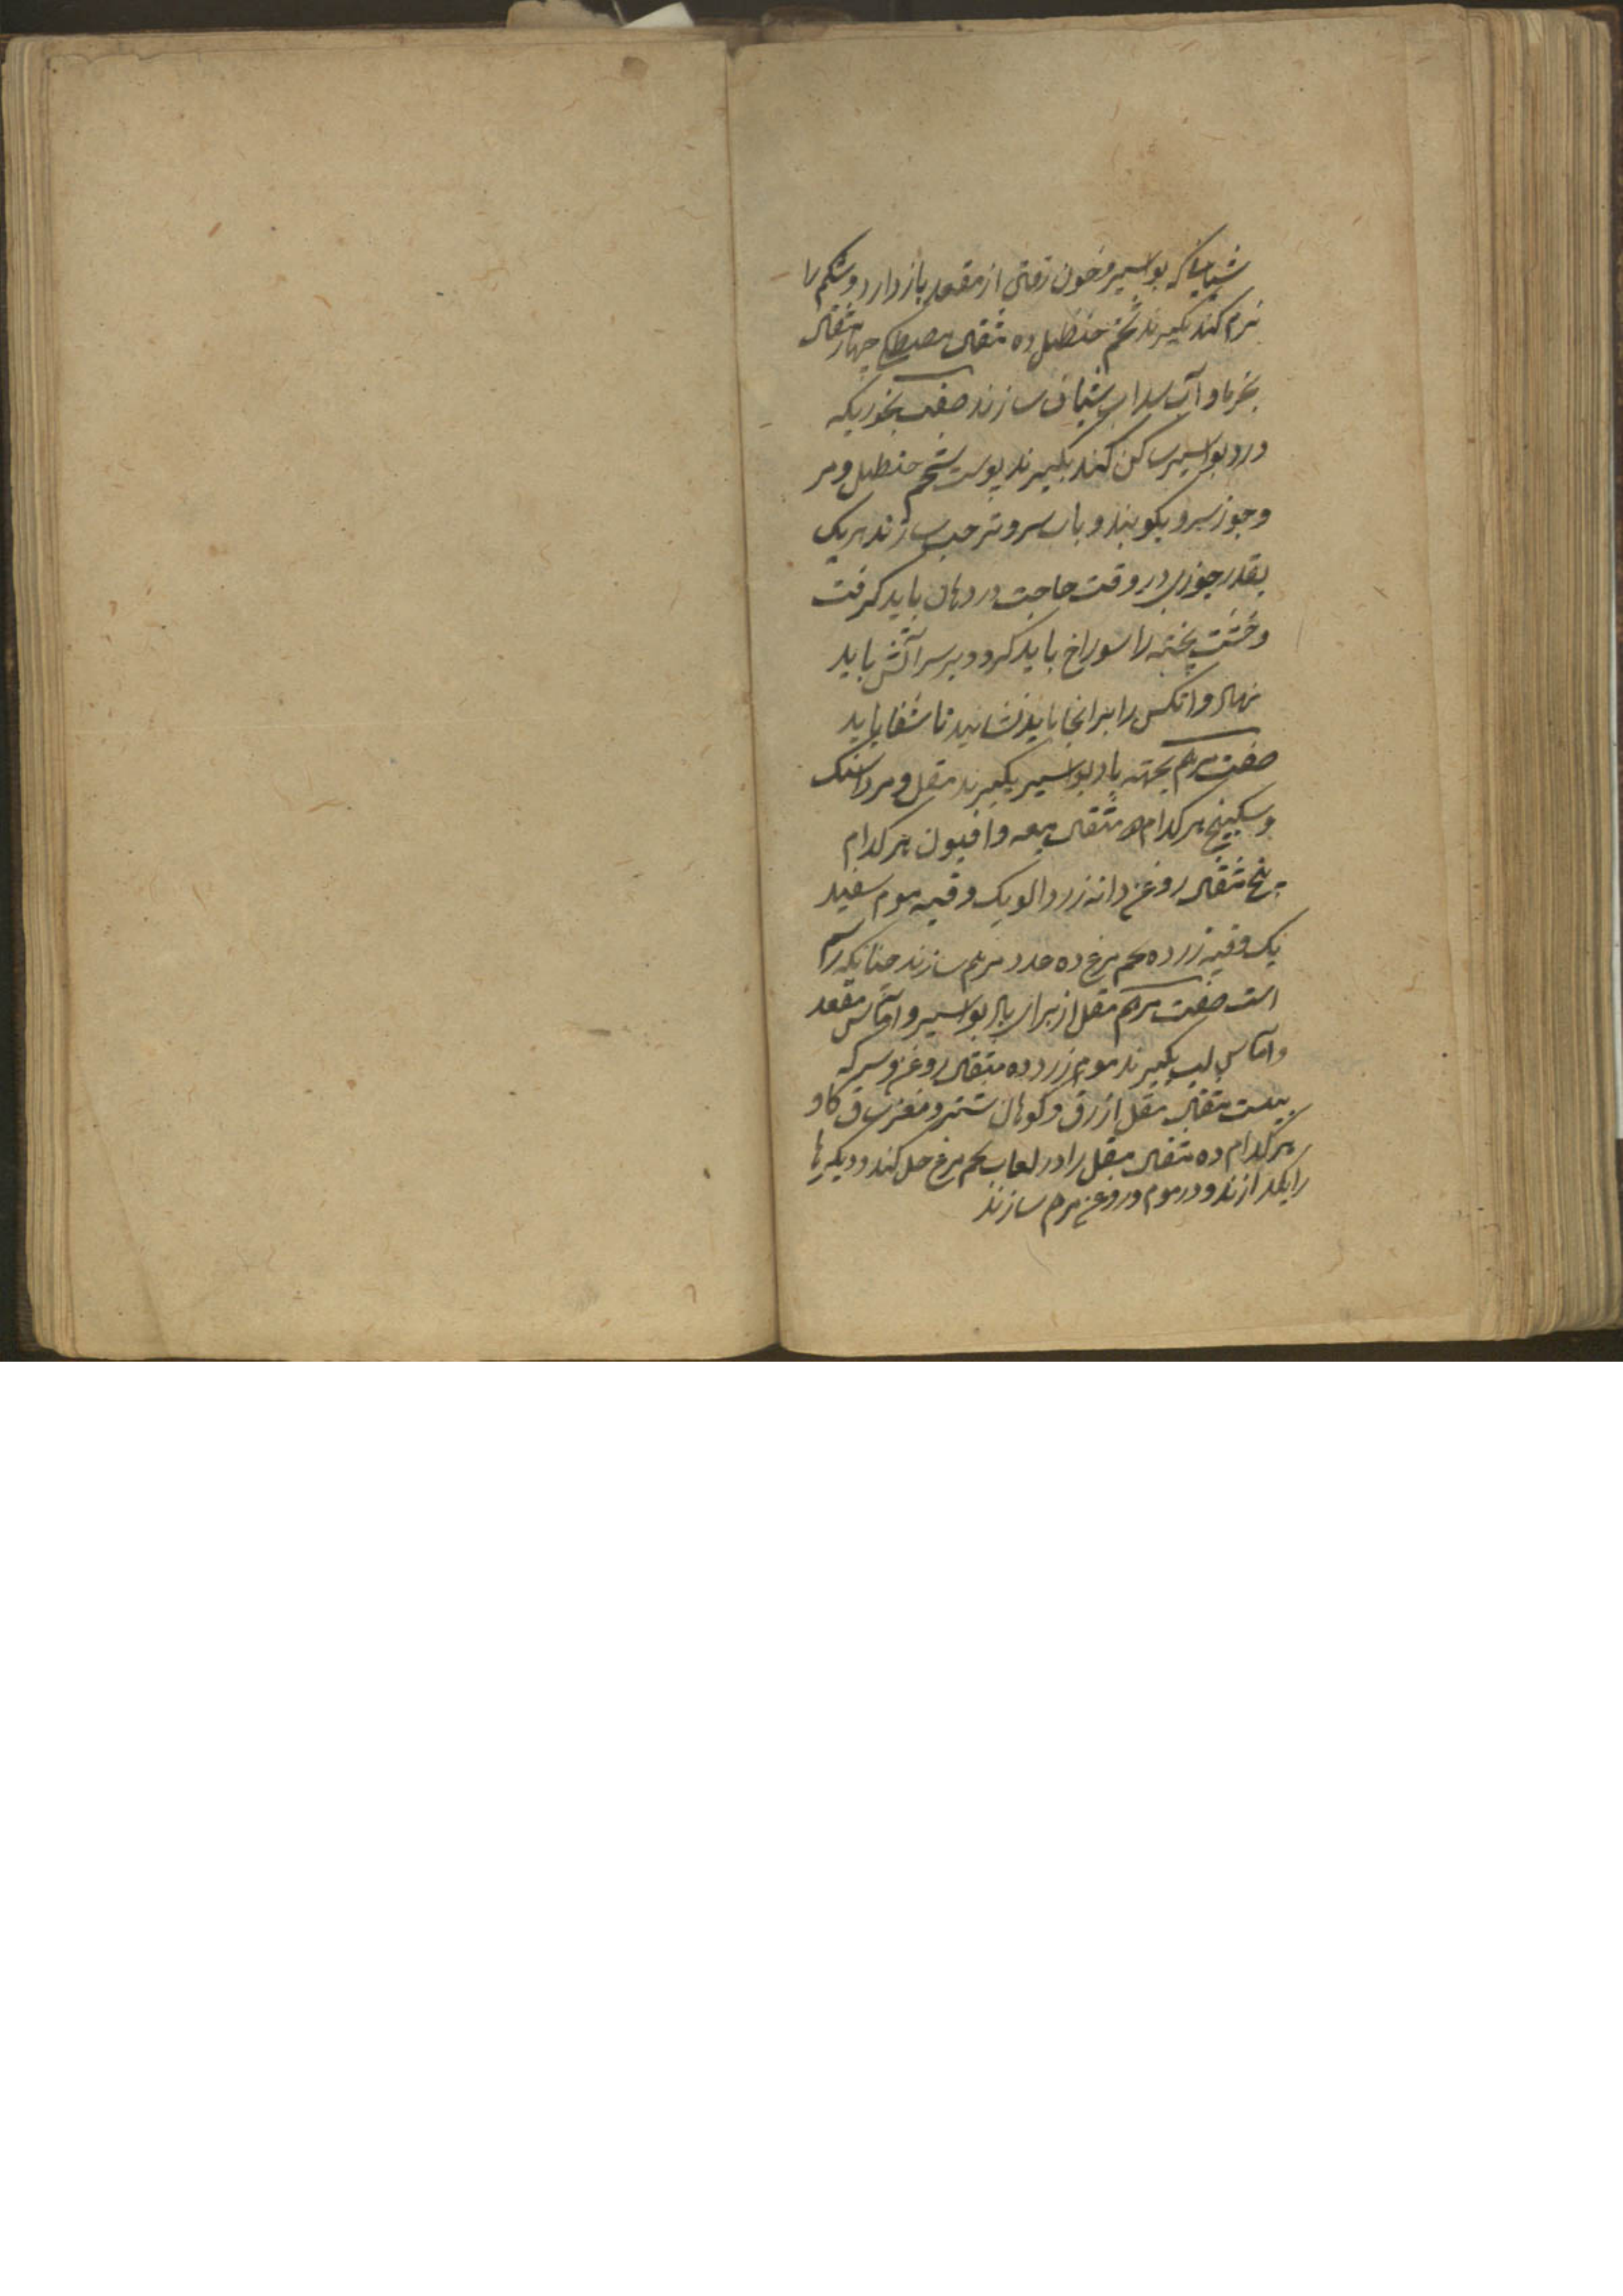 شیافی که بواسیر و خون رفتن از مقعد باز دارد و شکم را
نرم کند بگیرند شحم حنظل ده مثقال مصطکی چهار مثقال
بخرما و آب سداب شیاف سازند صفت بخوریکه
درد بواسیر ساکن کند بگیرند پوست شحم حنظل و مر
و جوز سرو بکوبند و باب سرو تر حب سازند هر یک
بقدر جوزی در وقت حاجت در دهان باید گرفت
و خشت پخته را سوراخ باید کرد و بر سر آتش باید
نهاد و انکس را بر انجا باید نشانید تا شفا یابد
صفت مرهم بجهته باد بواسیر بگیرند مقل و مرداسنک
و سکبینج هر کدام ده مثقال میعه و افیون هر کدام
پنج مثقال روغن دانه زردالو یک وقیه موم سفید
یک وقیه زرده تخم مرغ ده عدد مرهم سازند چنانکه رسم
است صفت مرهم مقل از برای باد بواسیر و آماس مقعد
و آماس لب بگیرند موم زرد ده مثقال روغن و سرکه
بیست مثقال مقل ازرق و کوهان شتر و مغز ساق کاو
هر کدام ده مثقال مقل را در لعاب تخم مرغ حل کند و دیگرها
را بگدازند و در موم و روغن مرهم سازند